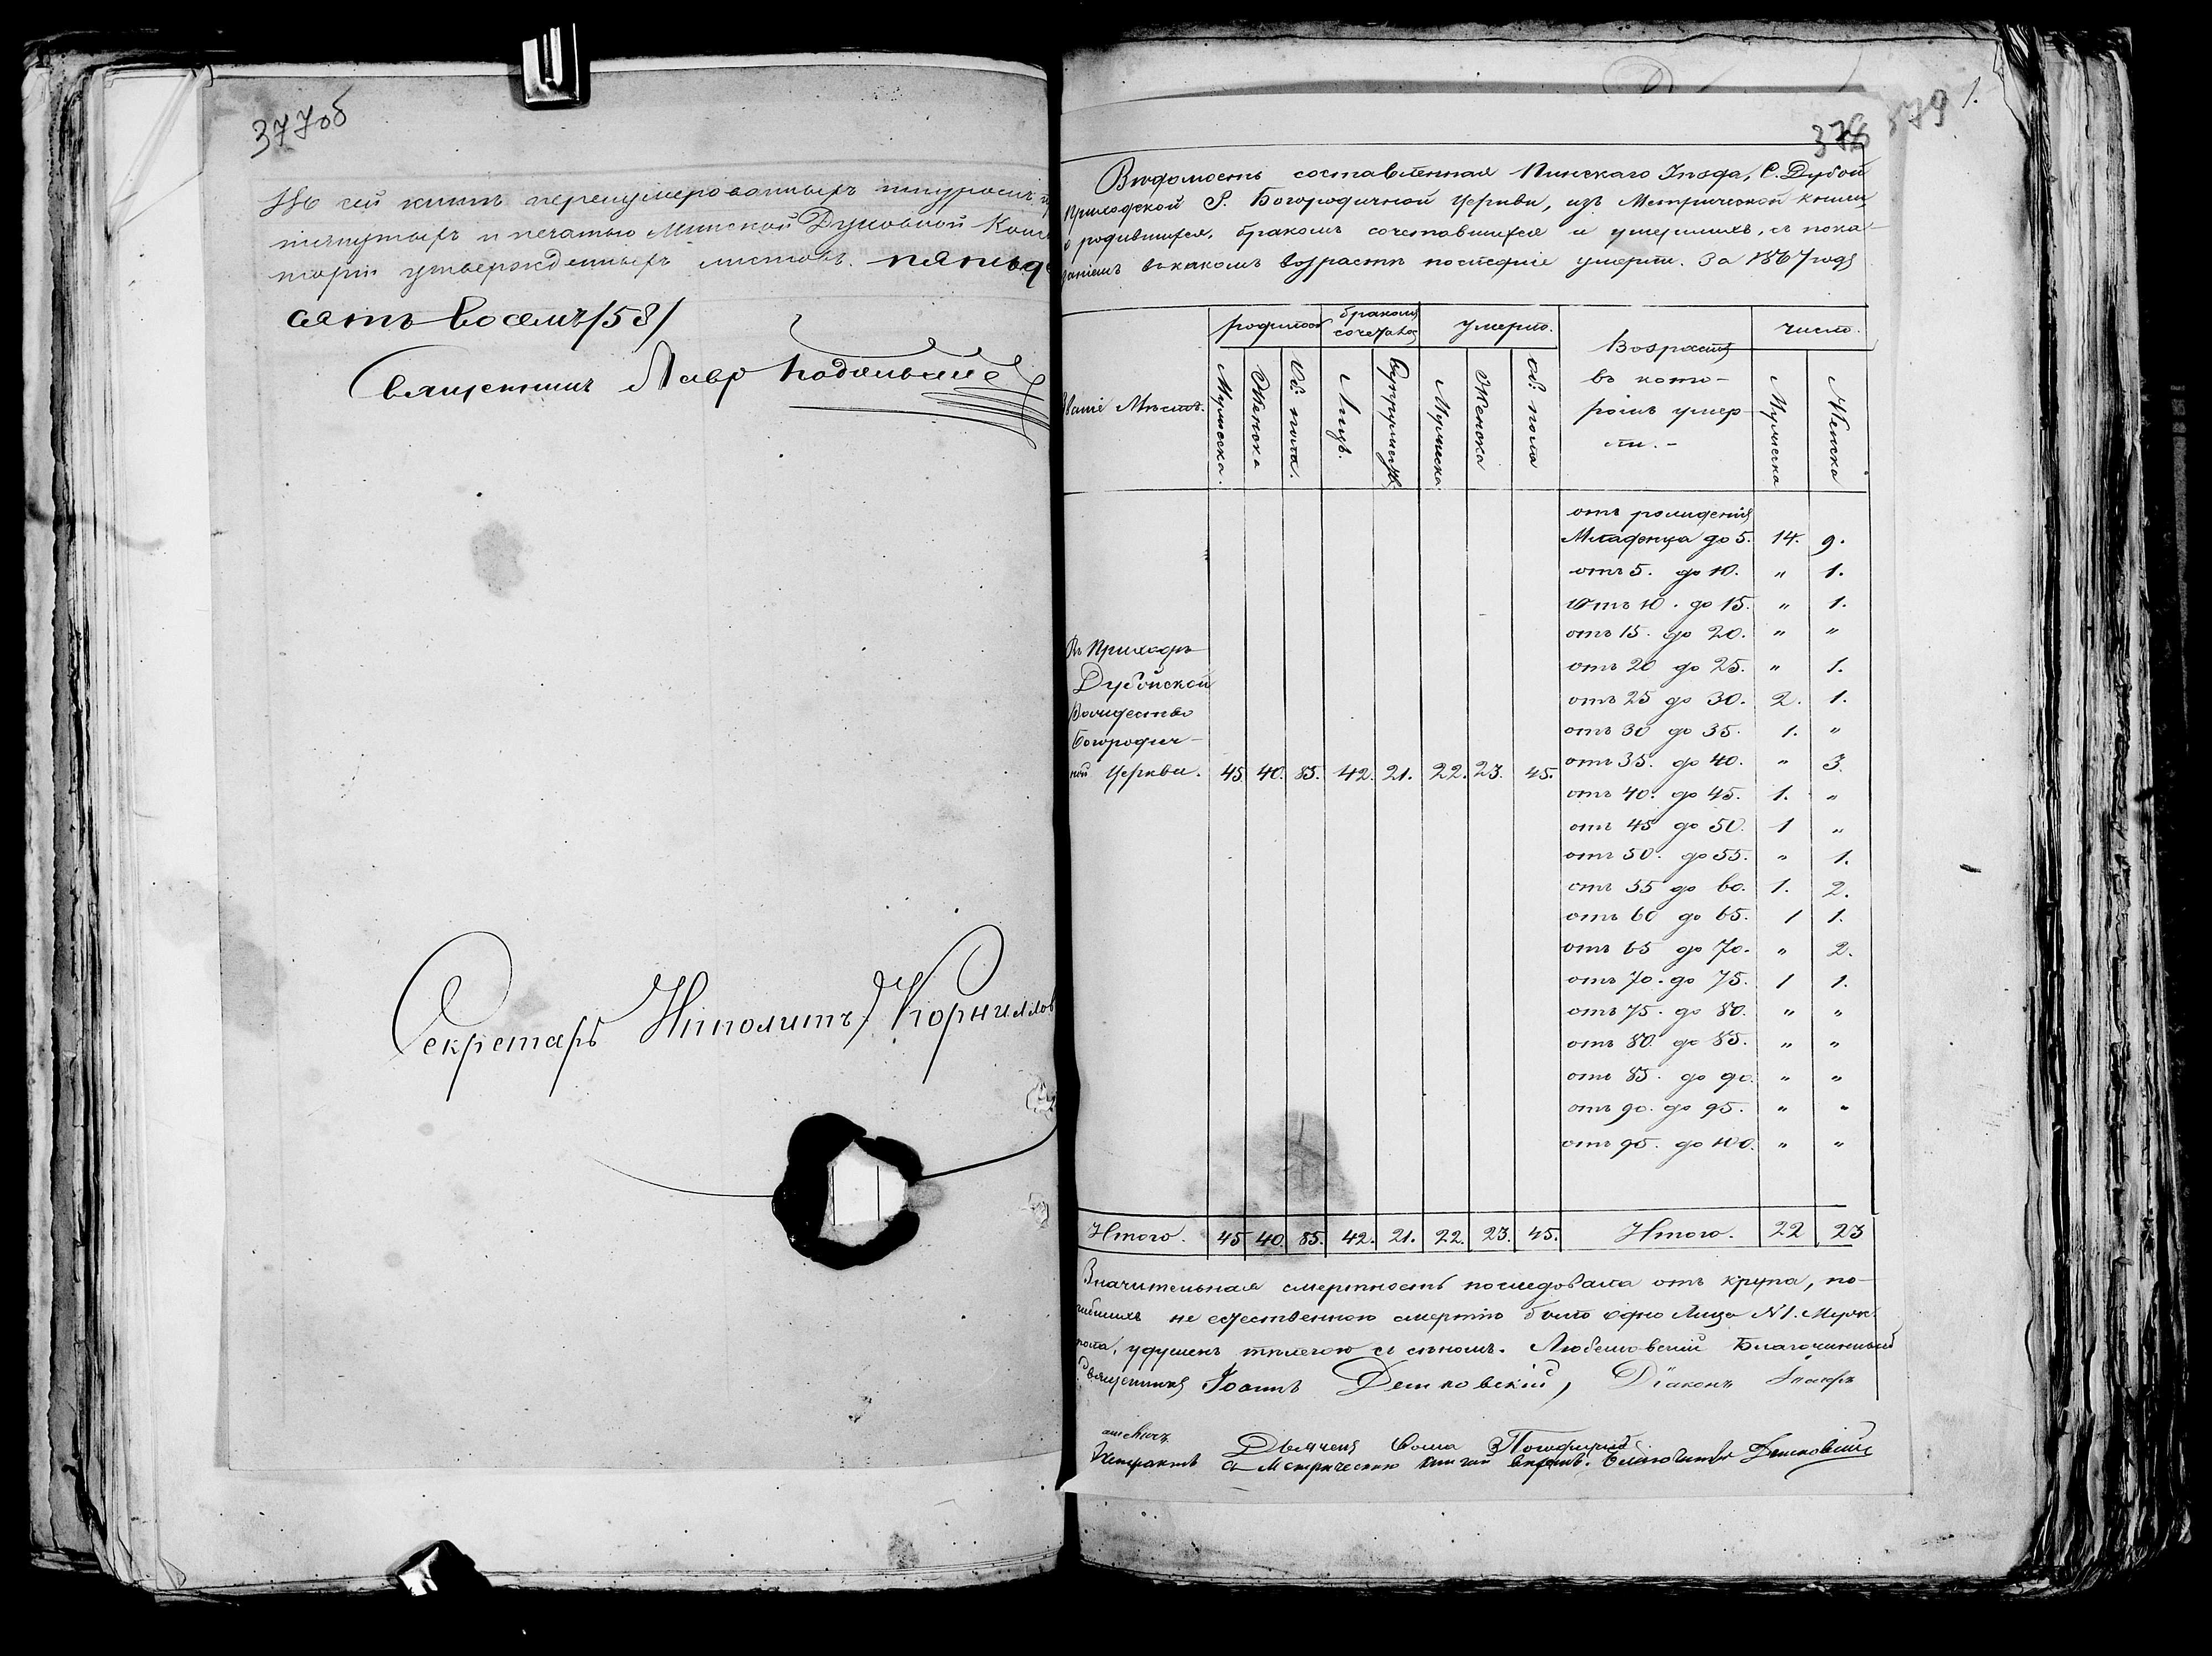 377об
Въ сей книгѣ перенумерованныхъ шнуромъ
тянутыхъ и печатью Минской Духовной Конси
торіи утвержденныхъ листовъ. пятьде
сятъ восемъ /58/
Священникъ Лавр
Секретарь Ипполитъ Корнилов
378
379
1.
Вѣдомость составленная Пинскаго Уѣзда, С. Дубой
Приходской Р. Богородичной Церкви, изъ Метрической книги
о родившихся, бракомъ сочетавшихся и умершихъ, съ пока-
заніемъ въ какомъ возрастѣ послѣдніе умерли. За 1867 годъ
Званіе Мѣстъ.
родилось
бракомъ сочеталось
Умерло.
Возрастъ въ кото-
ромъ умер-
ли. -
число.
Мужеска.
Женска
Об: пола.
Лицъ.
Супружествъ
Мужеска
Женска
Об: пола
Мужеска
Женска
отъ рожденія
Младенца до 5. 14. 9.
отъ 5. до 10. " 1.
отъ 10. до 15. " 1.
отъ 15. до 20. " "
отъ 20 до 25. " 1.
отъ 25 до 30. 2. 1.
отъ 30 до 35. 1. "
Въ Приходѣ
Дубойской
Рождество
Богородич-
ной Церкви. 45. 40. 85. 42. 21. 22. 23. 45.
отъ 35. до 40. " 3.
отъ 40. до 45. 1. "
отъ 45 до 50. 1 "
отъ 50. до 55. " 1.
отъ 55 до 60. 1. 2.
отъ 60 до 65. 1 1.
отъ 65 до 70. " 2.
отъ 70. до 75. 1 1.
отъ 75. до 80. " "
отъ 80. до 85. " "
отъ 85. до 90. " "
отъ 90. до 95. " "
отъ 95. до 100. " "
Итого. 45 40. 85. 42. 21. 22. 23. 45. Итого. 22 23
Значительная смертность послѣдовала отъ крупа, по-
гибшихъ не естественною смертію было одно Лицо N1. Мужск.
пола, удушенъ телегою съ сѣномъ. Любешовскій Благочинный
Священникъ Іоаннъ Демковскій, Діаконъ
Дьячекъ Фома
съ Метрическою книгою вѣренъ. Благочинный Демковскій